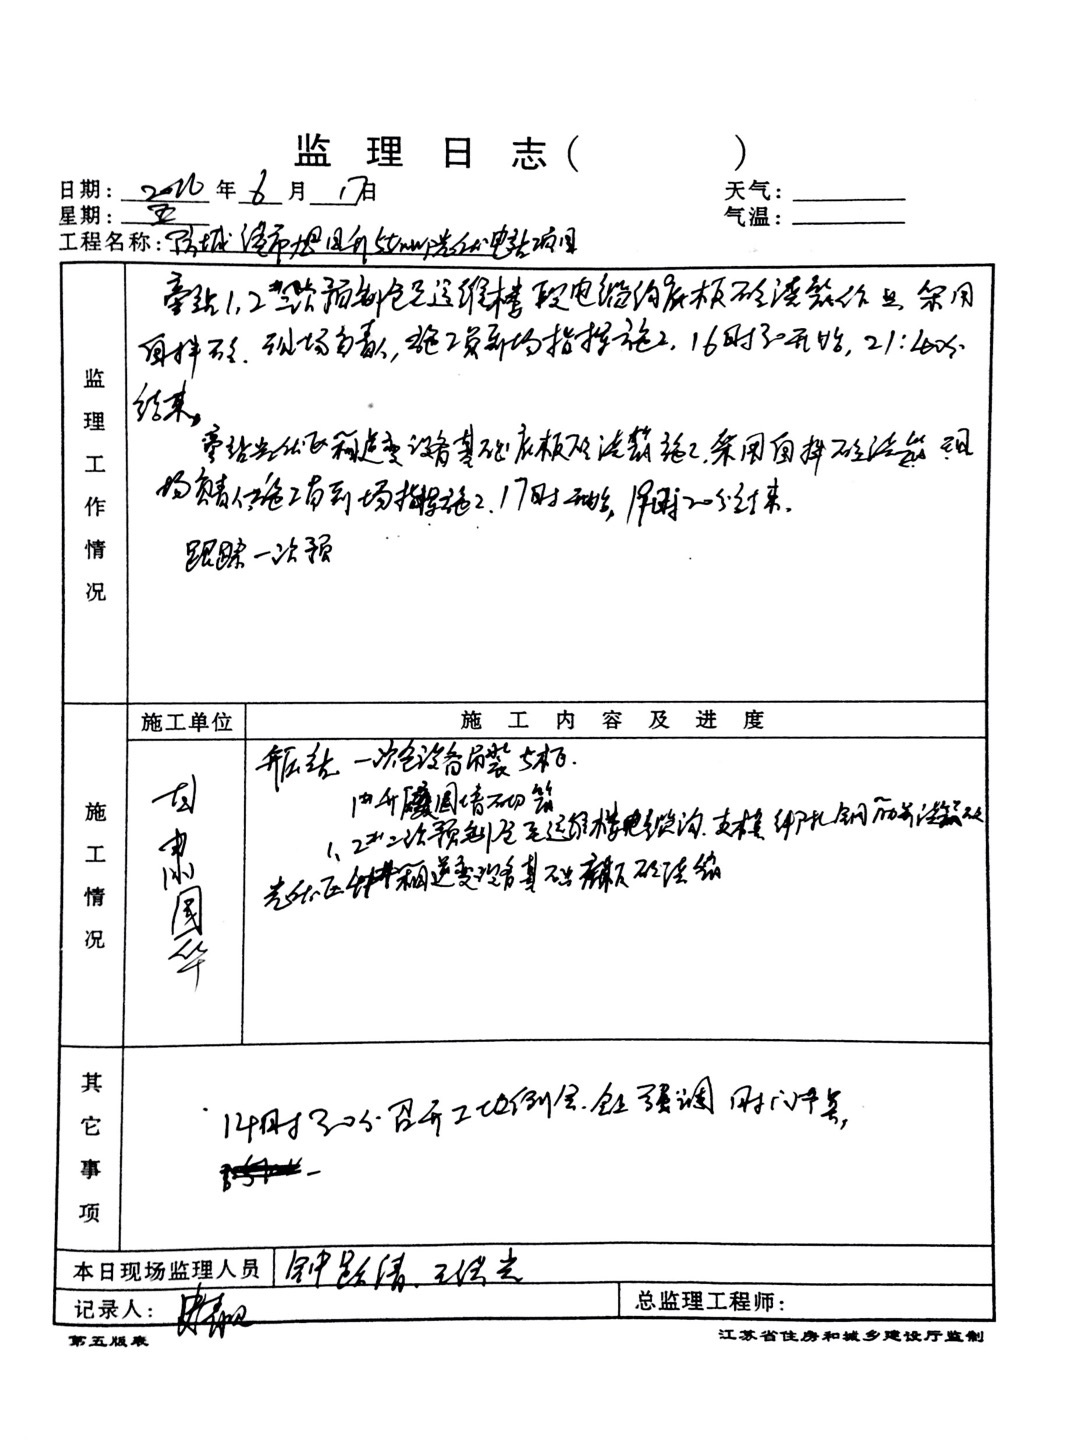 监 理 日 志（ ）
日期： 年 6 月 17日 天气：
星期：五 气温：
工程名称：防城港市 光伏电站项目
监理工作情况
旁站1,2#二次预制仓至运维楼段电缆沟底板砼浇筑作业，采用
自拌砼，现场负责人，施工员到场指挥施工，16时30开始，21:40分
结束。
旁站光伏区箱逆变设备基础底板砼浇筑施工，采用自拌砼浇筑，现
场负责人施工员到场指挥施工，17时开始，19时20分结束。
跟踪一次预
施工情况
施工单位 施 工 内 容 及 进 度
中 国 华
升压站 一次仓设备吊装 柜.
围墙砌筑
1,2#二次预制仓至运维楼电缆沟，支模绑扎钢筋并浇筑砼
光伏区箱逆变设备基础底板砼浇筑
其它事项
14时30分召开工地例会，会上强调
本日现场监理人员 钟 清、王
记录人： 总监理工程师：
第五版表 江苏省住房和城乡建设厅监制